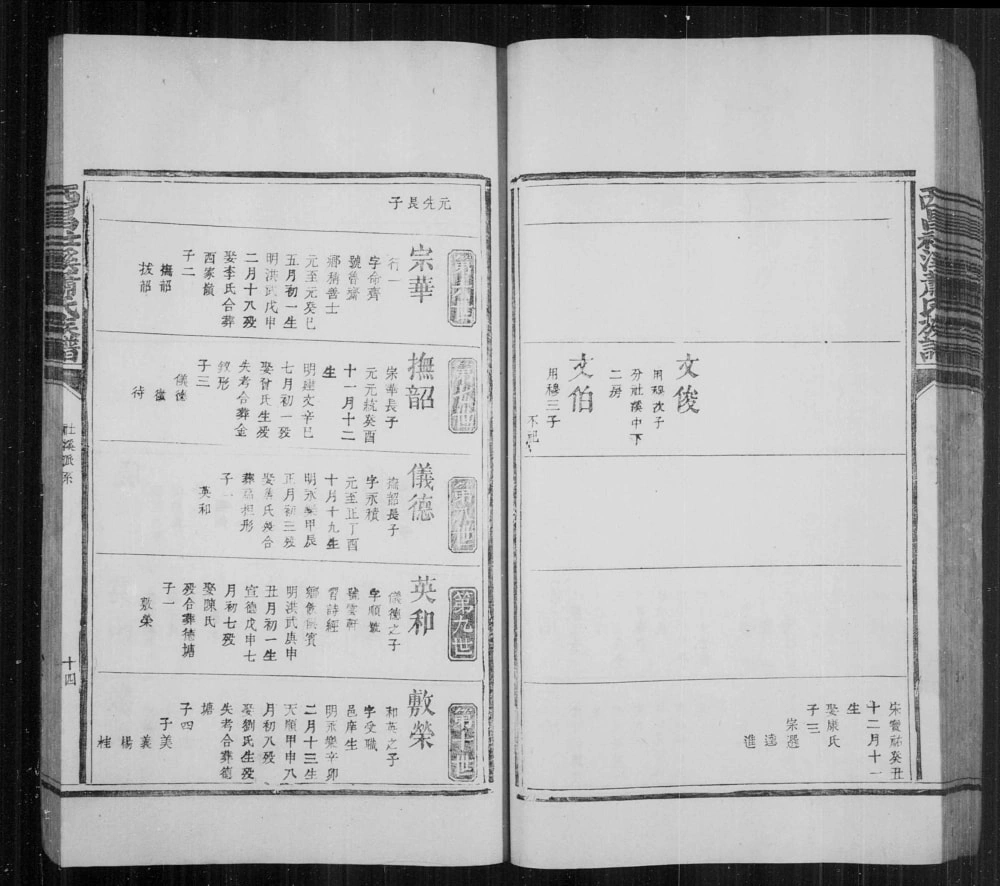 文俊
用穆次子
分社溪中下
二房
文伯
用穆三子
不記
宋寶祐癸丑
十二月十一
生
娶康氏
子三
宗選
逵
進
西昌社溪蕭氏族譜
元先長子
宗華
行一
字命齊
號魯齋
鄉稱善士
元至元癸巳
五月初一生
明洪武戊申
二月十八歿
娶李氏合葬
西家嶺
子二
撫韶
拔韶
撫韶
宗華長子
元元統癸酉
十一月十二
生
明建文辛巳
七月初一歿
娶曾氏生歿
失考合葬金
釵形
子三
儀德
待
儀德
撫韶長子
字永積
元至正丁酉
十月十九生
明永樂甲辰
正月初三歿
子一
英和
第九世
英和
儀德之子
字順
號雲軒
習詩經
明洪武庚申
丑月初一生
宣德戊申七
月初七歿
娶陳氏
歿合葬德塘
子一
敷榮
敷榮
和英之子
字受職
邑庠生
明永樂辛卯
二月十三生
天順甲申八
月初八歿
娶劉氏生歿
失考合葬德
塘
子四
子美
義
楊
桂
社溪派系
十四
西昌社溪蕭氏族譜